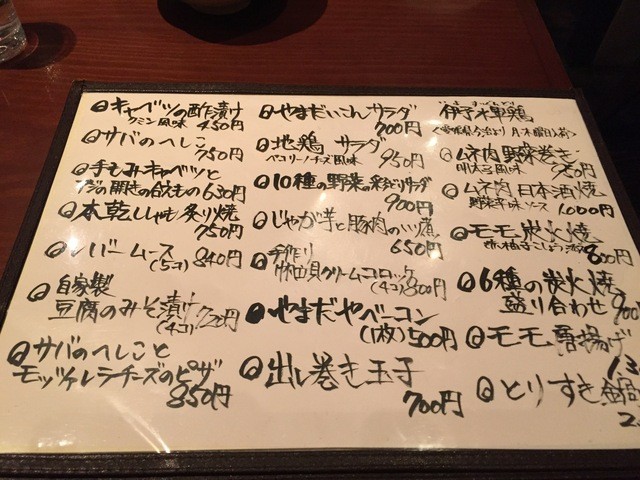 キャベツの酢漬け
クミン風味 450円
サバのへしこ
750円
手もみキャベツと
アジの開きの合えもの 630円
本乾ししゃも炙り焼
750円
レバームース
(5コ) 840円
自家製
豆腐のみそ漬け
(4コ) 720円
サバのへしこと
モッツァレラチーズのピザ
850円
やまだいこんサラダ
700円
地鶏サラダ
ペコリーノチーズ風味 950円
10種の野菜の彩どりサラダ
900円
じゃが芋と豚肉の
650円
手作り
クリームコロッケ
(4コ) 800円
やまだやベーコン
(1枚) 500円
出し巻き玉子
700円
伊予水軍鶏
ムネ肉野菜巻き
明太子風味
950円
ムネ肉日本酒焼
野菜辛味ソース 1,000円
モモ炭火焼
800円
6種の炭火焼
盛り合わせ 900
モモ唐揚げ
とりすき鍋